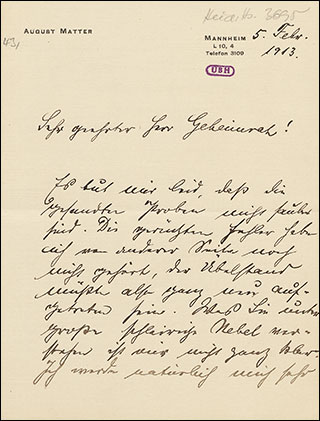 Heid. Hs. 3695
AUGUST MATTER
MANNHEIM
L 10, 4
Telefon 3109
5. Febr.
1913.
UBH
Sehr geehrter Herr Geheimrat!
Es tut mir leid, daß die
gesandten Proben nicht sauber
sind. Die gerügten Fehler habe
ich von anderer Seite noch
nicht gehört, der Übelstand
müßte also ganz neu auf-
getreten sein. Was Sie unter
große schleierige Nebel ver-
stehen ist mir nicht ganz klar.
Ich werde natürlich mich sehr